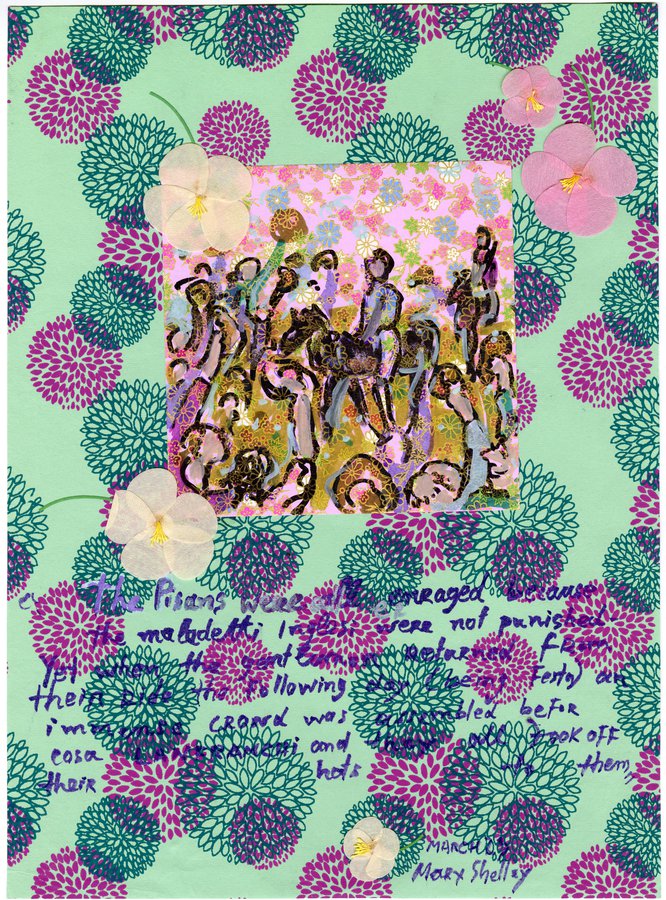 the Pisans were all enraged because
the maladetti Inglesi were not punished
Yet when the gentlemen returned from
their ride the following day (being Festa) an
immense crowd was assembled befor
cosa Lanfranchi and they all took off
their hats to them,
MARCH
Mary Shelley